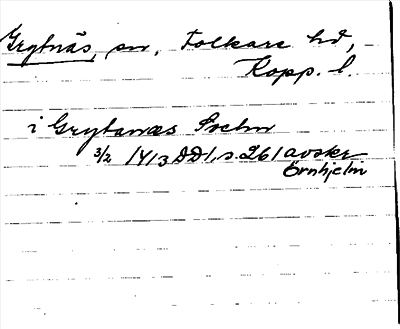 Grytnäs, sn, Folkare hd,
Kopp. l.
i Grytanæs Sochn
3/2 1413 DD 1, s. 261 avskr
Örnhjelm